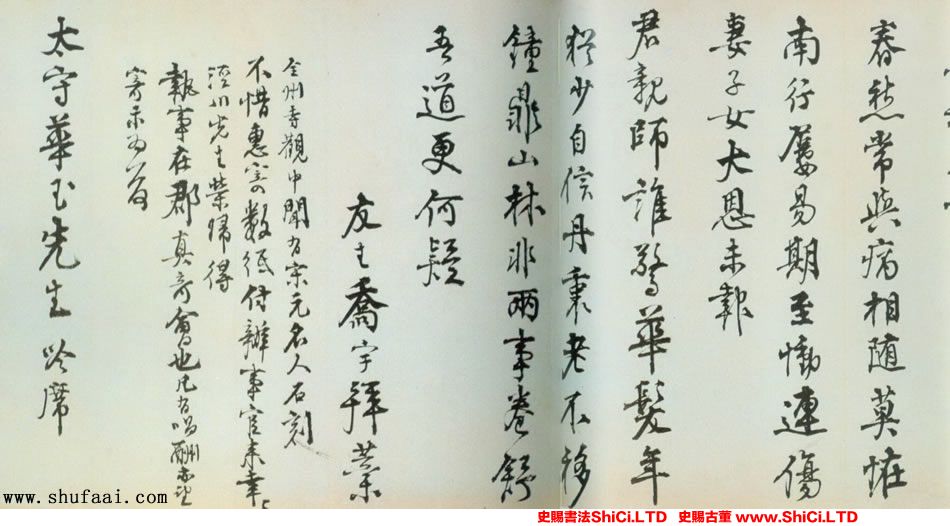 春愁常與病相随莫怪
南行屡易期至慟連傷
妻子女大恩未報
君親師誰驚華髮年
猶少自信丹衷老不移
鐘鼎山林非两事卷舒
吾道更何疑
友生喬宇拜業
全州寺觀中聞有宋元名人石刻
不惜惠寄数纸付辦事官来幸〻
涇川先生榮歸得
執事在郡真奇會也凡有唱酬亦望
寄示為荷
太守華玉先生吟席
www.shufaai.com
史賜書法ShiCi.LTD 史賜古董 www.ShiCi.LTD